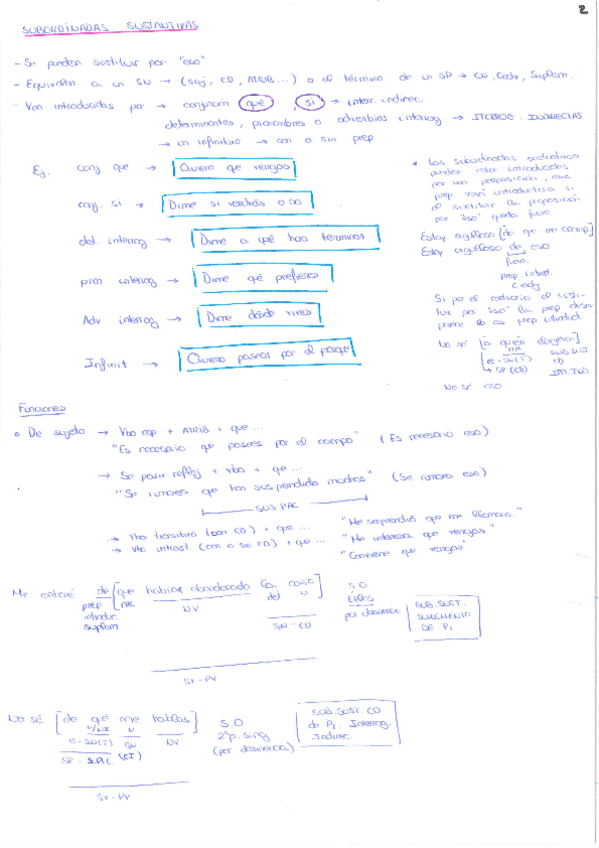 2
SUBORDINADAS SUSTANTIVAS
- Se pueden sustituir por "eso"
- Equivalen a un SN → (suj, CD, ATRIB...) o al término de un SP → CN, Cadv, Suplem.
- Van introducidas por → conjunción que, si → interr. indirec.
determinantes, pronombres o adverbios interrog → INTERROG. INDIRECTAS
→ un infinitivo → con o sin prep
Ej. conj que → Quiero que vengas
conj. si → Dime si vendrás o no
det. interrog → Dime a qué hora terminas
pron interrog → Dime qué prefieres
Adv interrog → Dime dónde vives
Infinit → Quiero pasear por el parque
* Las subordinadas sustantivas
pueden estar introducidas
por una preposición, esa
prep. será introductora si
al sustituir la proposición
por "eso" queda fuera.
Estoy orgulloso [de que me ]
Estoy orgulloso de eso
fuera.
prep. introd.
Cadj
Si por el contrario al susti-
tuir por "eso" la prep desa-
parece no es prep introd
No sé [a quién ]
SUB.SUST
e-SN(T) CD
→ SP (CD) INT. IND
No sé eso
Funciones
De sujeto → Vbo cop + ATRIB + que ...
"Es necesario que pasees por el campo" (Es necesario eso)
→ Se pasiv. reflej + vbo + que ...
"Se rumorea que han suspendido muchos" (Se rumorea eso)
SUJ PAC
→ Vbo transitivo (con CD) + que ... "Me sorprendió que me llamara."
→ Vbo intrast. (con o sin CI) + que ... "Me interesa que vengas"
"Conviene que vengas"
Me enteré de [que habían abandonado la casa] S.O
prep nx NV det N Ellos
introduc. SN-CD por desinencia
Suplem
SUB.SUST.
SUPLEMENTO
DE P1
SV-PV
No sé [de qué me hablas] S.O
N NV 2ª p. sing
e-SN(T) SN (por desinencia)
SP-SUPL (CI)
SUB.SUST. CD
de P1. Interrog.
Indirec.
SV-PV